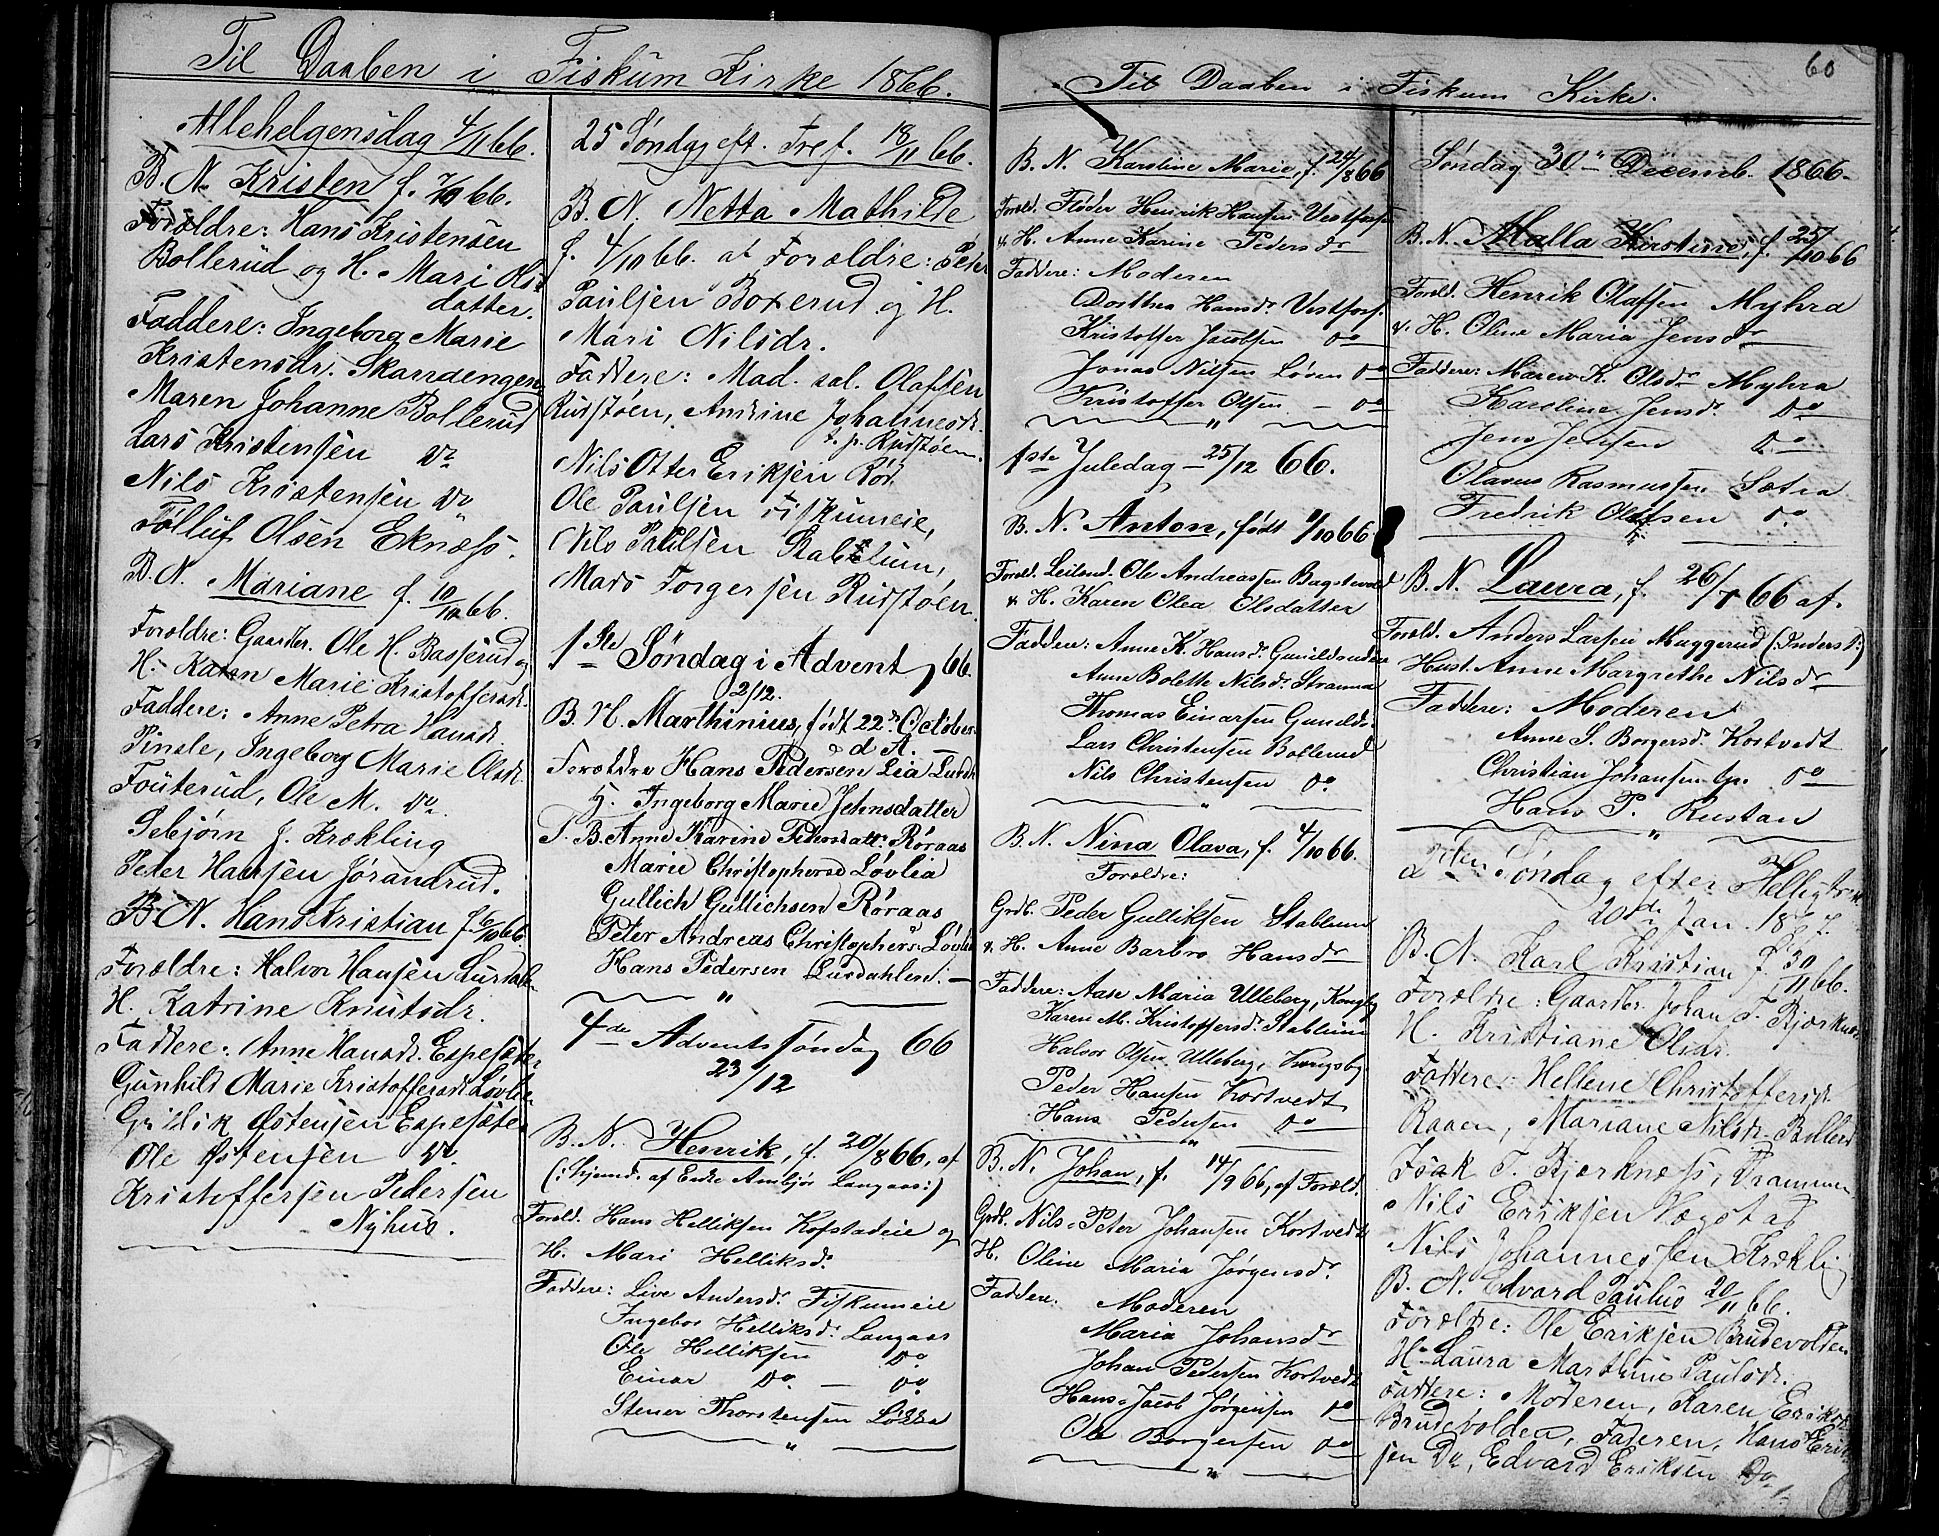 Til Daaben i Fiskum Kirke 1866.
Allehelgensdag 4/11 66.
B. N. Kristen f. 7/9 66.
Forældre: Hans Kristensen
Bollerud og H. Mari Ols
datter.
Faddere: Ingeborg Marie
Kristensdr. Skarradengen
Maren Johanne Bollerud
Lars Kristensen Do
Nils Kristensen Do
Tølluf Olsen Eknæss.
B. N. Mariane f. 10/10 66.
Forældre: Gaardbr. Ole H. Basserud og
H. Karen Marie Kristoffersdr.
Faddere: Anne Petra Hansdr.
Pinsle, Ingeborg Marie Olsdr.
Fouterud, Ole M. Do
Sebjørn J. Krækling
Peter Hansen Jørandrud.
B. N. Hans Kristian f. 6/10 66.
Forældre: Halvor Hansen Lursdalen
H. Katrine Knutsdr.
Faddere: Anne Hansdr. Espesæter
Gunhild Marie Kristoffersdr. Løvlia
Gullik Østensen Espesæter
Ole Østensen Do
Kristoffersen Pedersen
Nyhus.
25 Søndag eft. Tref. 18/11 66.
B. N. Netta Mathilde
f. 4/10 66. af Forældre: Peter
Paulsen Boxerud og H.
Mari Nilsdr.
Faddere: Mad. sal. Olafsen
Rudstøen, Andrine Johannesdr.
t. p. Rudstøen.
Nils Otter Eriksen Rør.
Ole Paulsen Fiskumeie,
Nils Paulsen Stablum,
Mads Torgersen Rudstøen.
1ste Søndag i Advent, 66.
2/12.
B. N. Marthinius, født 22de October
d. A.
Forældre Hans Pedersen Lia Lursdr
H. Ingeborg Marie Jehnsdatter
T. B. Anne Karine Pedersdattr. Røraas
Marie Christophersd. Løvlia
Gullich Gullichsen Røraas
Peter Andreas Christophers. Løvlia
Hans Pedersen Lusdahlen: –
4de Advents søndag 66
23/12
B. N. Henrik, f. 20/8 66, af
(: hjemd. af Enke Ambjør Langaas:)
Foræld. Hans Helliksen Kofstadeie og
H. Mari Helliksd.
Faddere: Live Andersdr. Fiskumeie
Ingebor Helliksd. Langaas
Ole Helliksen Do
Einar Do – Do
Stener Thorstensen Løkka
60
Til Daaben i Fiskum Kirke.
B. N. Karoline Marie, f. 24/8 66
Foræld. Fløder Henrik Hansen Vestfossen
& H. Anne Karine Pedersdr
Faddere: Moderen
Dorthea Hansdr. Vestfoss.
Kristoffer Jacobsen Do
Jonas Nilsen Løven Do
Kristoffer Olsen – Do
1ste Juledag – 25/12 66.
B. N. Anton, født 8/10 66.
Foræld. Leilend. Ole Andreassen Bagstevold
& H. Karen Olea Olsdatter
Faddere: Anne K. Hansd. Gunildsrudeie
Anne Bolette Nilsdr. Stramma
Thomas Einarsen Gunilds.
Lars Christensen Bollerud
Nils Christensen Do
B. N. Nina Olava, f. 4/10 66.
Forældre:
Grdb. Peder Gulliksen Stablum
& H. Anne Barbro Hansdr
Faddere: Aase Maria Ulleberg, Kongsbg
Karen M. Kristoffersdr. Stablum
Halvor Olsen Ulleberg, Kongsbg
Peder Hansen Kortvedt
Hans Pedersen Do
B. N. Johan, f. 14/9 66, af Foræld.
Grdb. Nils Peter Johansen Kortvedt
H. Oline Maria Jørgensdr.
Faddere: Moderen
Maria Johansdr
Johan Pedersen Kortvedt
Hans Jacob Jørgensen Do
Ole Borgersen Do
Søndag 30te Decemb. 1866.
B. N. Malla Kirstine, f. 25/10 66
Foræld. Henrik Olafsen Myhra
& H. Oline Maria Jensdr
Faddere: Maren K. Olsdr Myhra
Karoline Jensd. Do
Jens Jensen Do
Olavus Rasmussen Sætra
Fredrik Olafsen Do
B. N. Laura, f. 26/7 66 af.
Foræld. Anders Larsen Muggerud (: Inderst:)
Hust. Anne Margrethe Nilsdr
Faddere: Moderen
Anne S. Borgersd. Kortvedt
Christian Johansen Gp. Do
Hans P. Rustan
2den Søndag efter Helligtrek
20de Jan. 1867.
B. N. Karl Kristian f. 30/11 66.
Forældre: Gaardbr. Johan T. Bjerknæs
H. Kristiane Olsdr.
Faddere: Hellene Christoffersdr.
Raaen, Mariane Nilsdr. Bollerud
Isak T. Bjerknæss, Drammen
Nils Eriksen Vegstad
Nils Johannessen Krækling
B. N. Edvard Paulus 20/11 66.
Forældre: Ole Eriksen Brudevolden
H. Laura Marthine Paulsdr.
Faddere: Moderen, Karen Eriksd.
Brudevolden, Faderen, Hans Erik
sen Do, Edvard Eriksen Do.